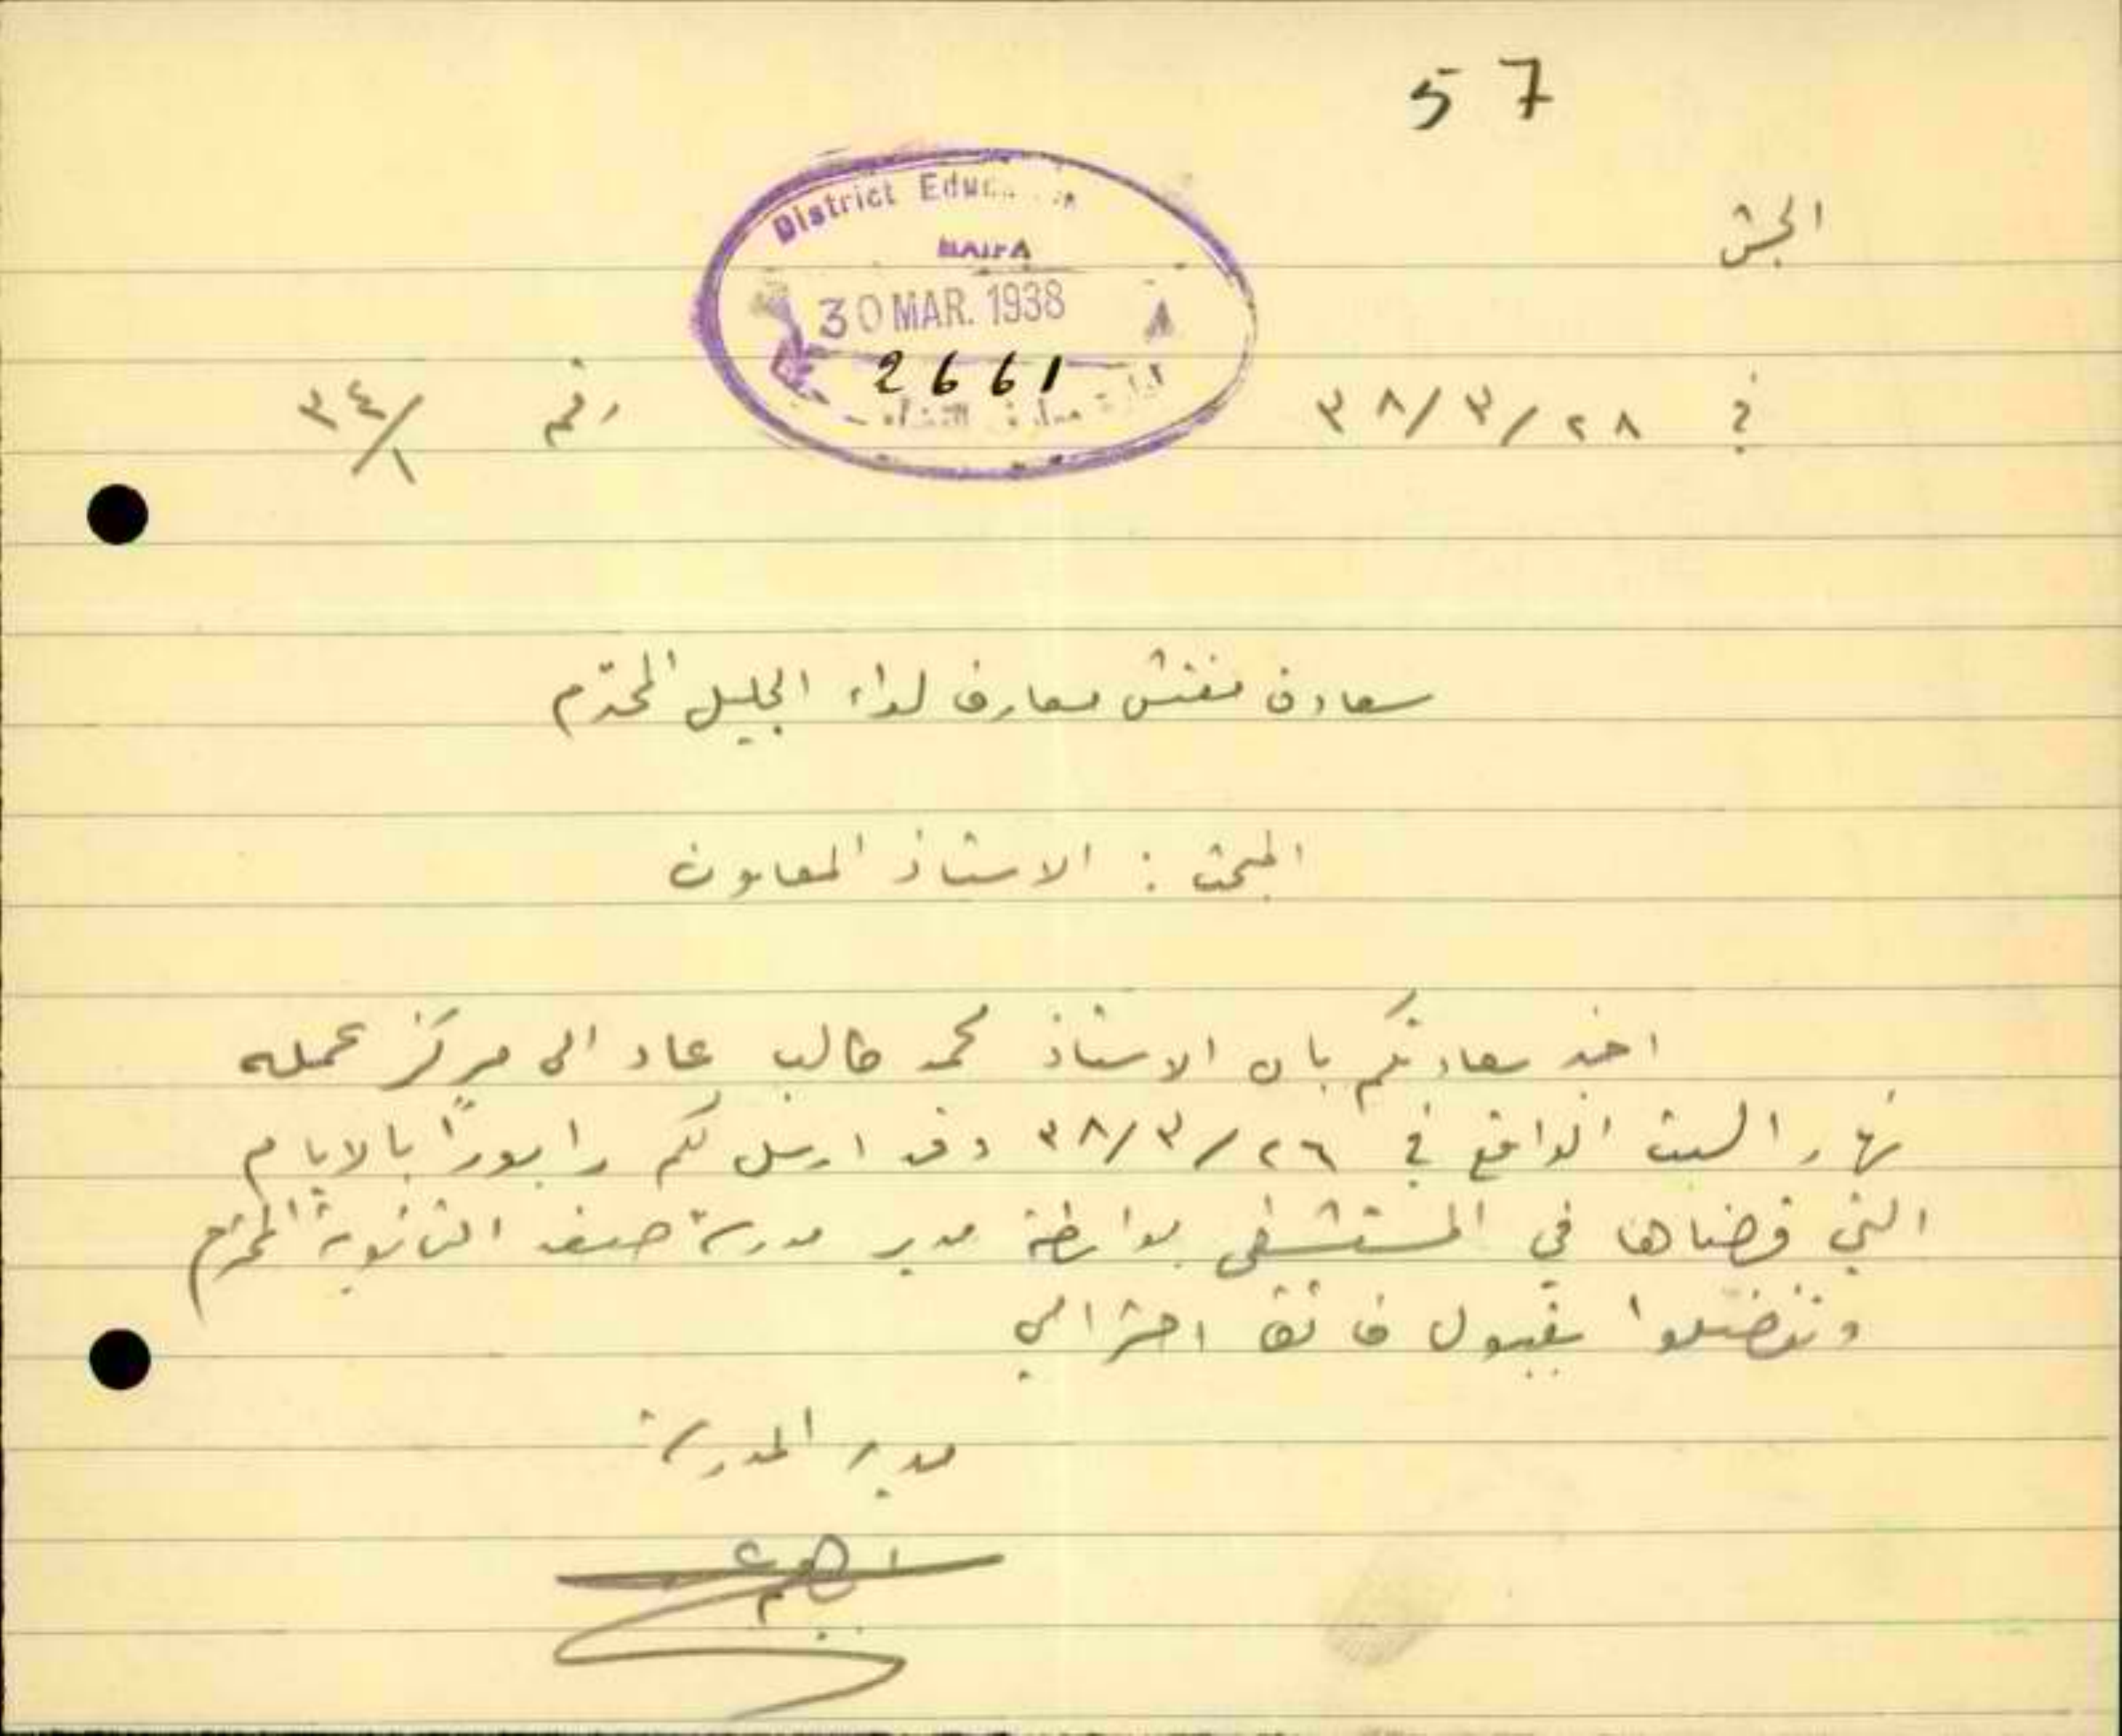 57
الجش
District Educ
HAIFA
30 MAR. 1938
2661
في ٢٨/٣/٣٨ رقم ٣٤/١
سعادة مفتش معارف لواء الجليل المحترم
المبحث : الاستاذ المعاون
اخبر سعادتكم بان الاستاذ محمد طالب عاد الى مركز عمله
نهار السبت الواقع في ٢٦/٣/٣٨ وقد ارسل لكم رابورًا بالايام
التي قضاها في المستشفى بواسطة مدير مدرسة صفد الثانوية المحترم
وتفضلوا بقبول فائق احترامي
مدير المدرسة